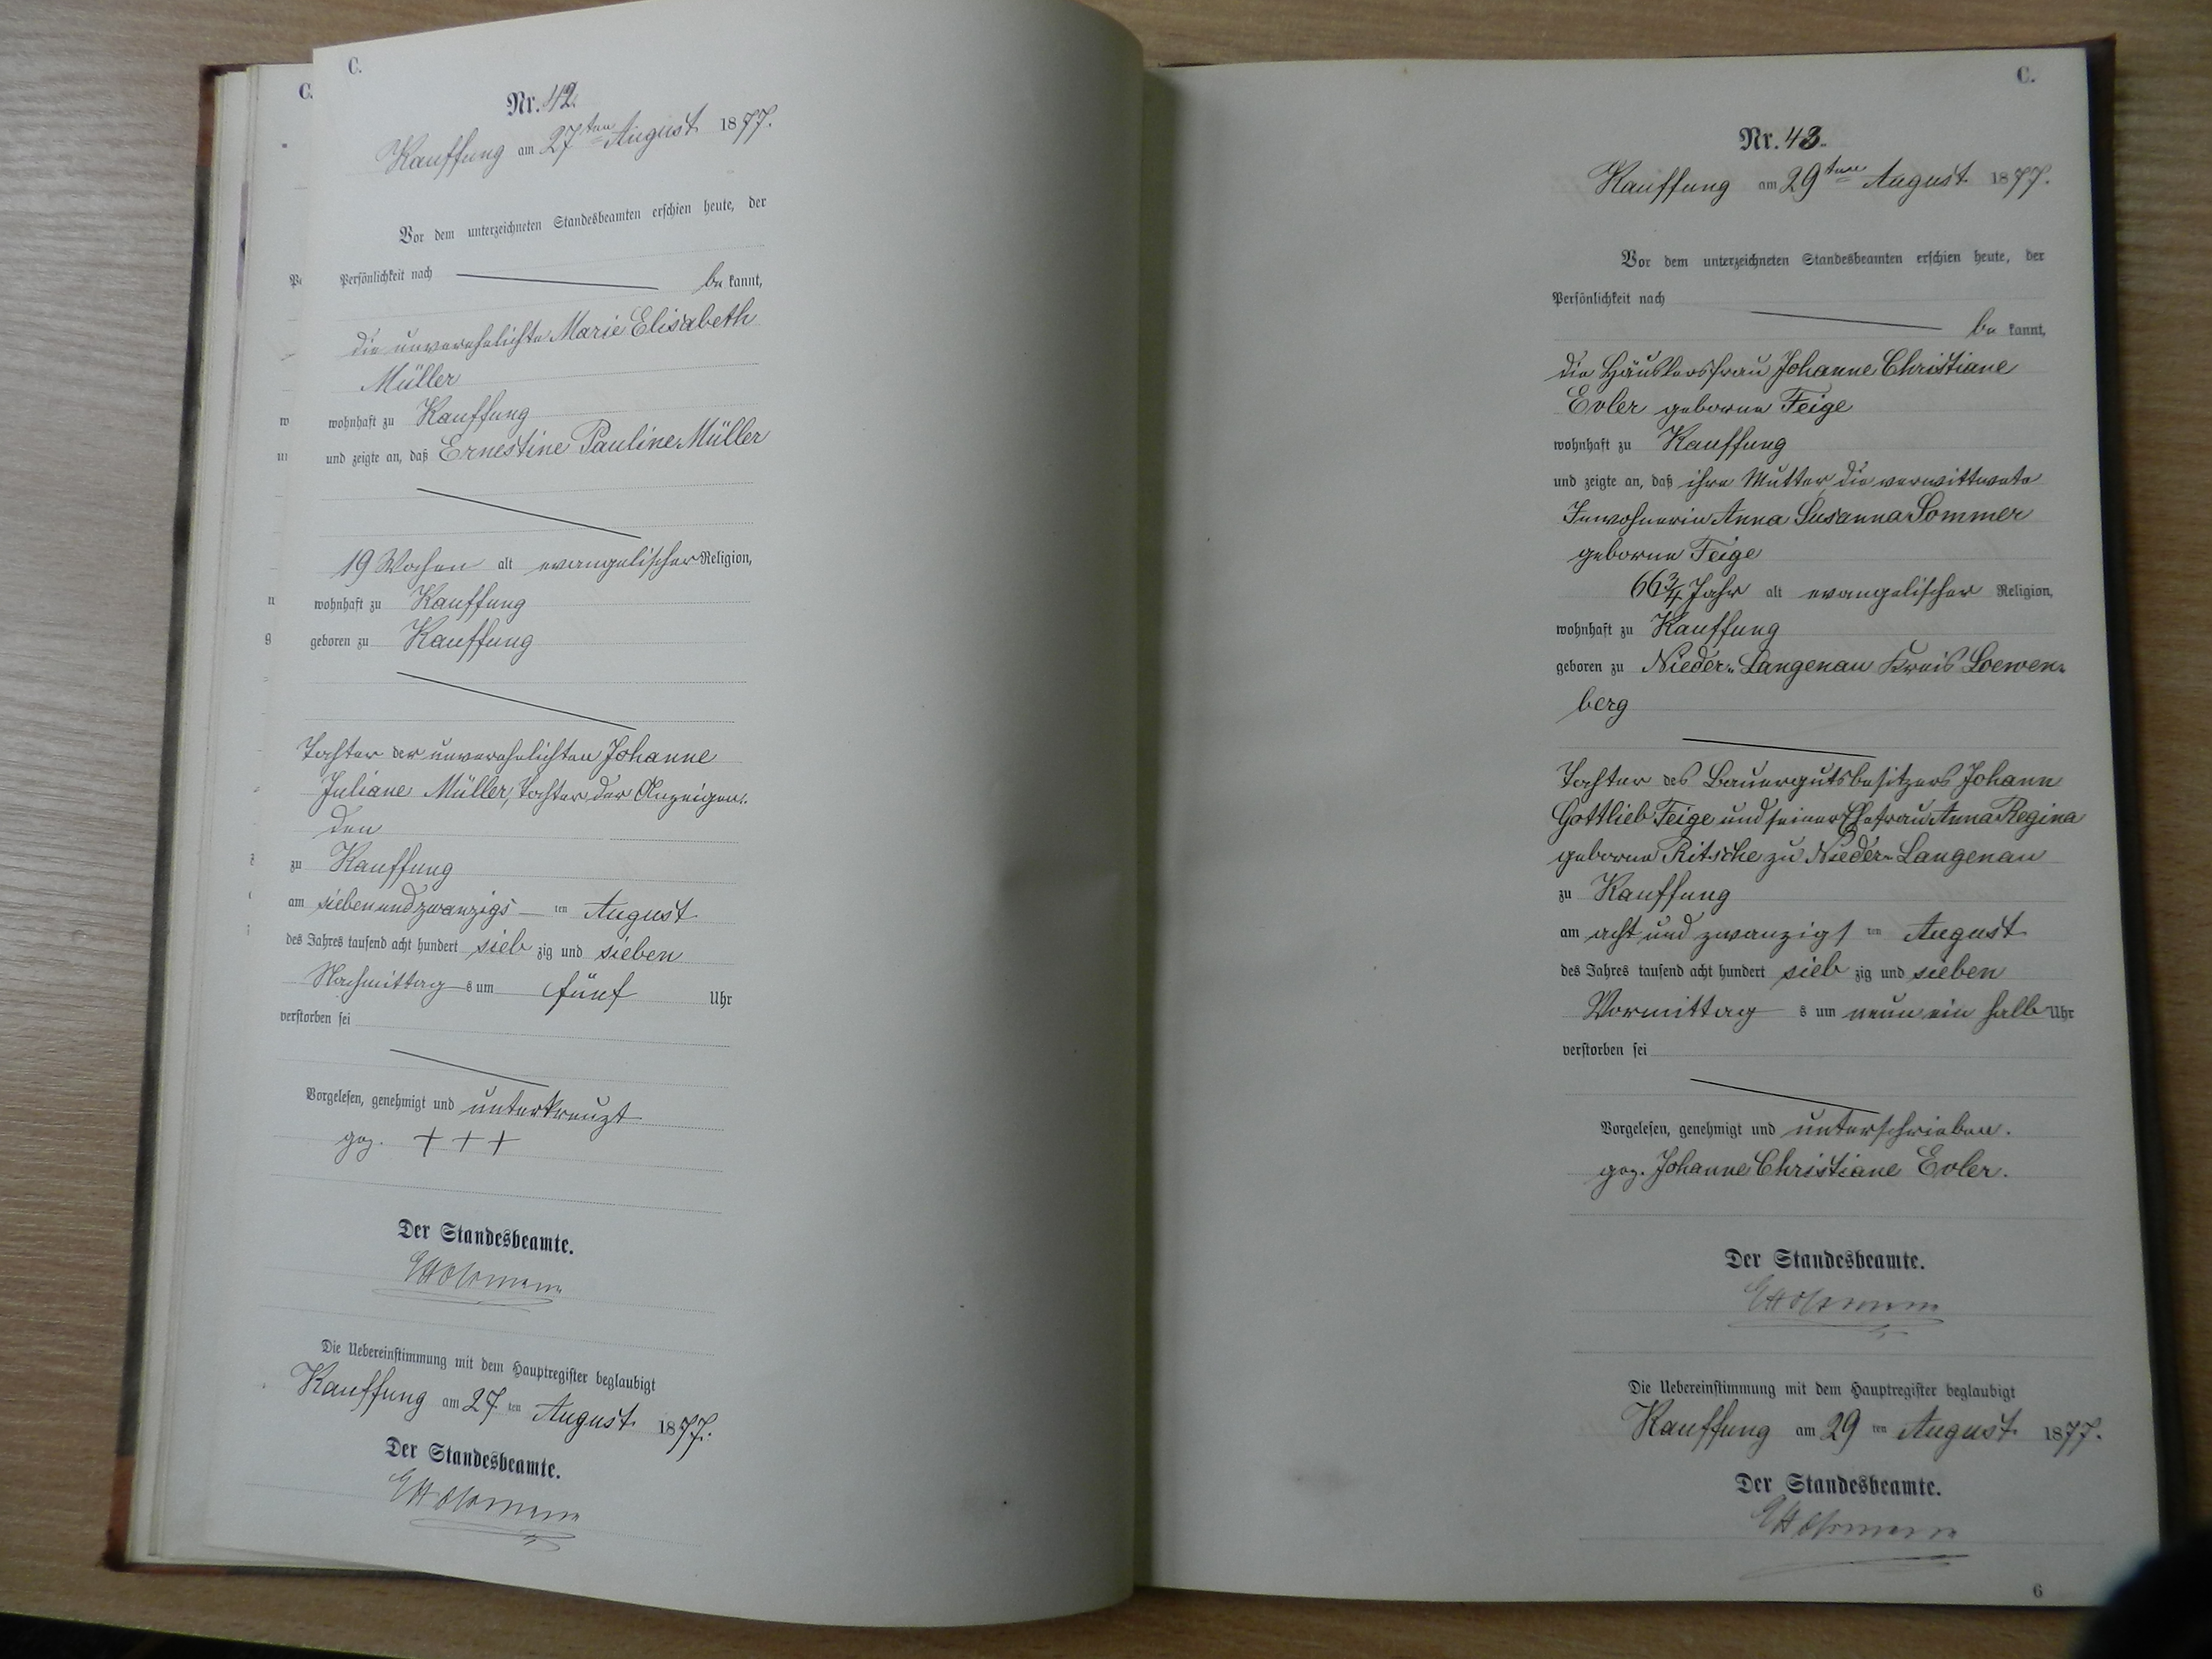 C.
C.
Nr. 42.
Kauffung am 27ten August 1877.
Vor dem unterzeichneten Standesbeamten erschien heute, der
Persönlichkeit nach be kannt,
die unverehelichte Marie Elisabeth
Müller
wohnhaft zu Kauffung
und zeigte an, daß Ernestine Pauline Müller
19 Wochen alt evangelischer Religion,
wohnhaft zu Kauffung
geboren zu Kauffung
Tochter der unverehelichten Johanne
Juliane Müller, Tochter der Anzeigen-
den
zu Kauffung
am siebenundzwanzigs ten August
des Jahres tausend acht hundert sieb zig und sieben
Nachmittag s um fünf Uhr
verstorben sei
Vorgelesen, genehmigt und unterkreuzt
gez. + + +
Der Standesbeamte.
Die Uebereinstimmung mit dem Hauptregister beglaubigt
Kauffung am 27 ten August 1877.
Der Standesbeamte.
C.
Nr. 43.
Kauffung am 29ten August 1877.
Vor dem unterzeichneten Standesbeamten erschien heute, der
Persönlichkeit nach
be kannt,
die Häuslersfrau Johanne Christiane
Evler geborne Feige
wohnhaft zu Kauffung
und zeigte an, daß ihre Mutter, die verwittwete
Inwohnerin Anna Susanna Sommer
geborne Feige
66 3/4 Jahr alt evangelischer Religion,
wohnhaft zu Kauffung
geboren zu Nieder-Langenau Kreis Loewen-
berg
Tochter des Bauergutsbesitzers Johann
Gottlieb Feige und seiner Ehefrau Anna Regina
geborne Ritsche zu Nieder-Langenau
zu Kauffung
am acht und zwanzigs ten August
des Jahres tausend acht hundert sieb zig und sieben
Vormittag s um neun ein halb Uhr
verstorben sei
Vorgelesen, genehmigt und unterschrieben.
gez. Johanne Christiane Evler.
Der Standesbeamte.
Die Uebereinstimmung mit dem Hauptregister beglaubigt
Kauffung am 29 ten August 1877.
Der Standesbeamte.
6